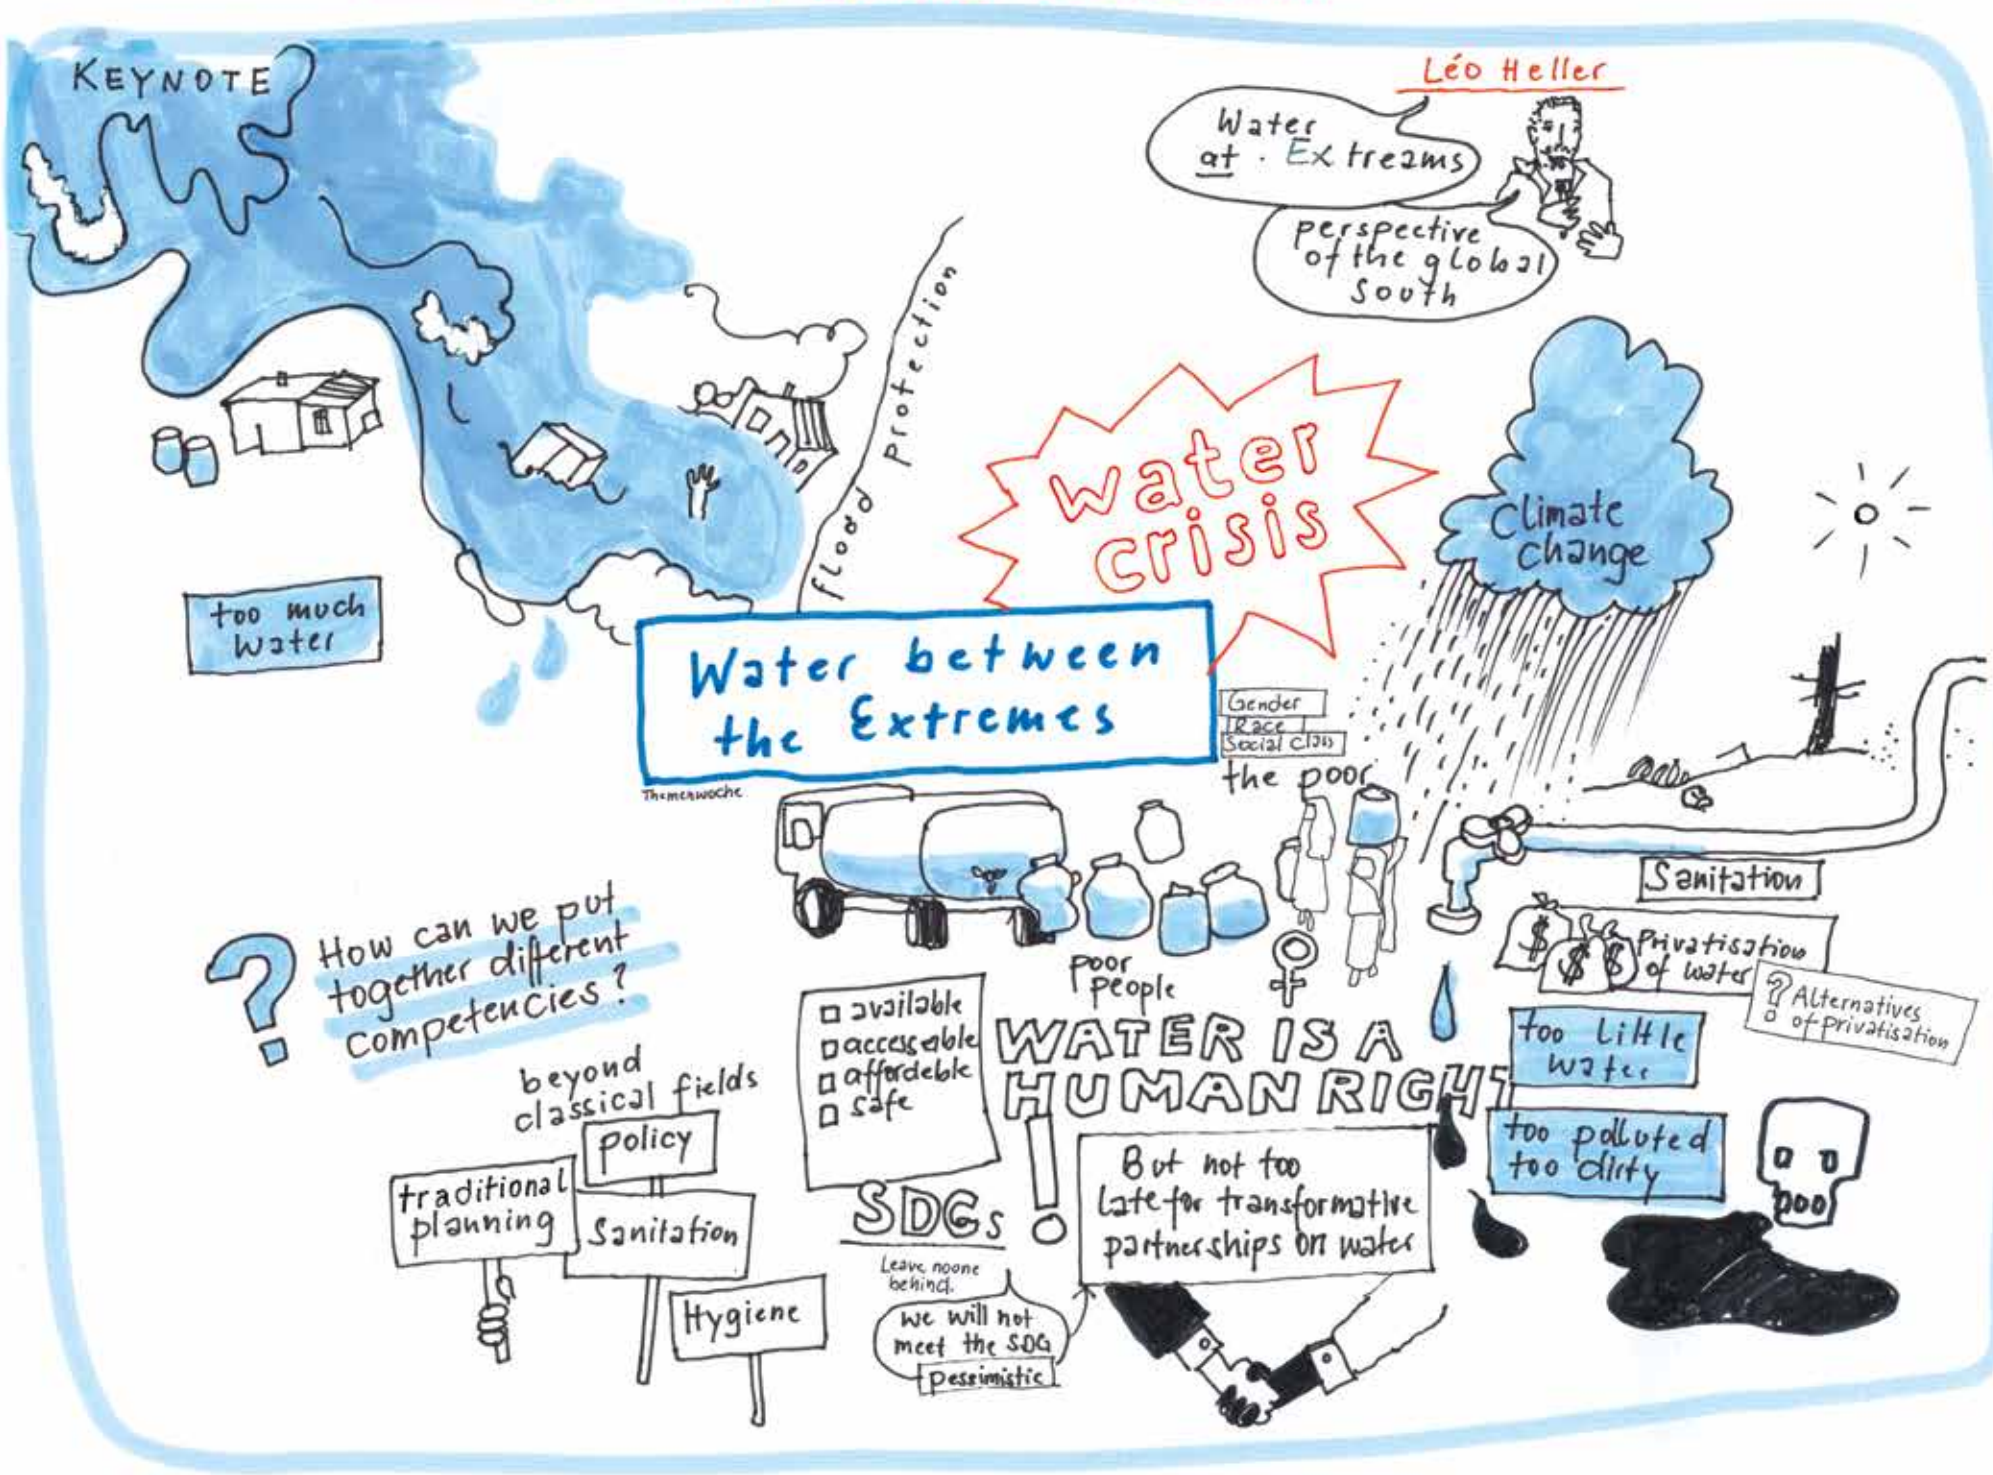 KEYNOTE
Léo Heller
Water
at . Extreams
perspective
of the global
South
flood protection
water
crisis
Climate
change
too much
water
Water between
the Extremes
Themenwoche
Gender
Race
Social Class
the poor
Sanitation
$
$ $
Privatisation
of water
? Alternatives
of privatisation
? How can we put
together different
competencies?
poor
people
available
accessable
affordeble
safe
WATER IS A
HUMAN RIGHT
!
too little
water
too polluted
too dirty
beyond
classical fields
policy
traditional
planning
Sanitation
Hygiene
SDGs
Leave noone
behind.
we will not
meet the SDG
pessimistic
But not too
late for transformative
partnerships on water